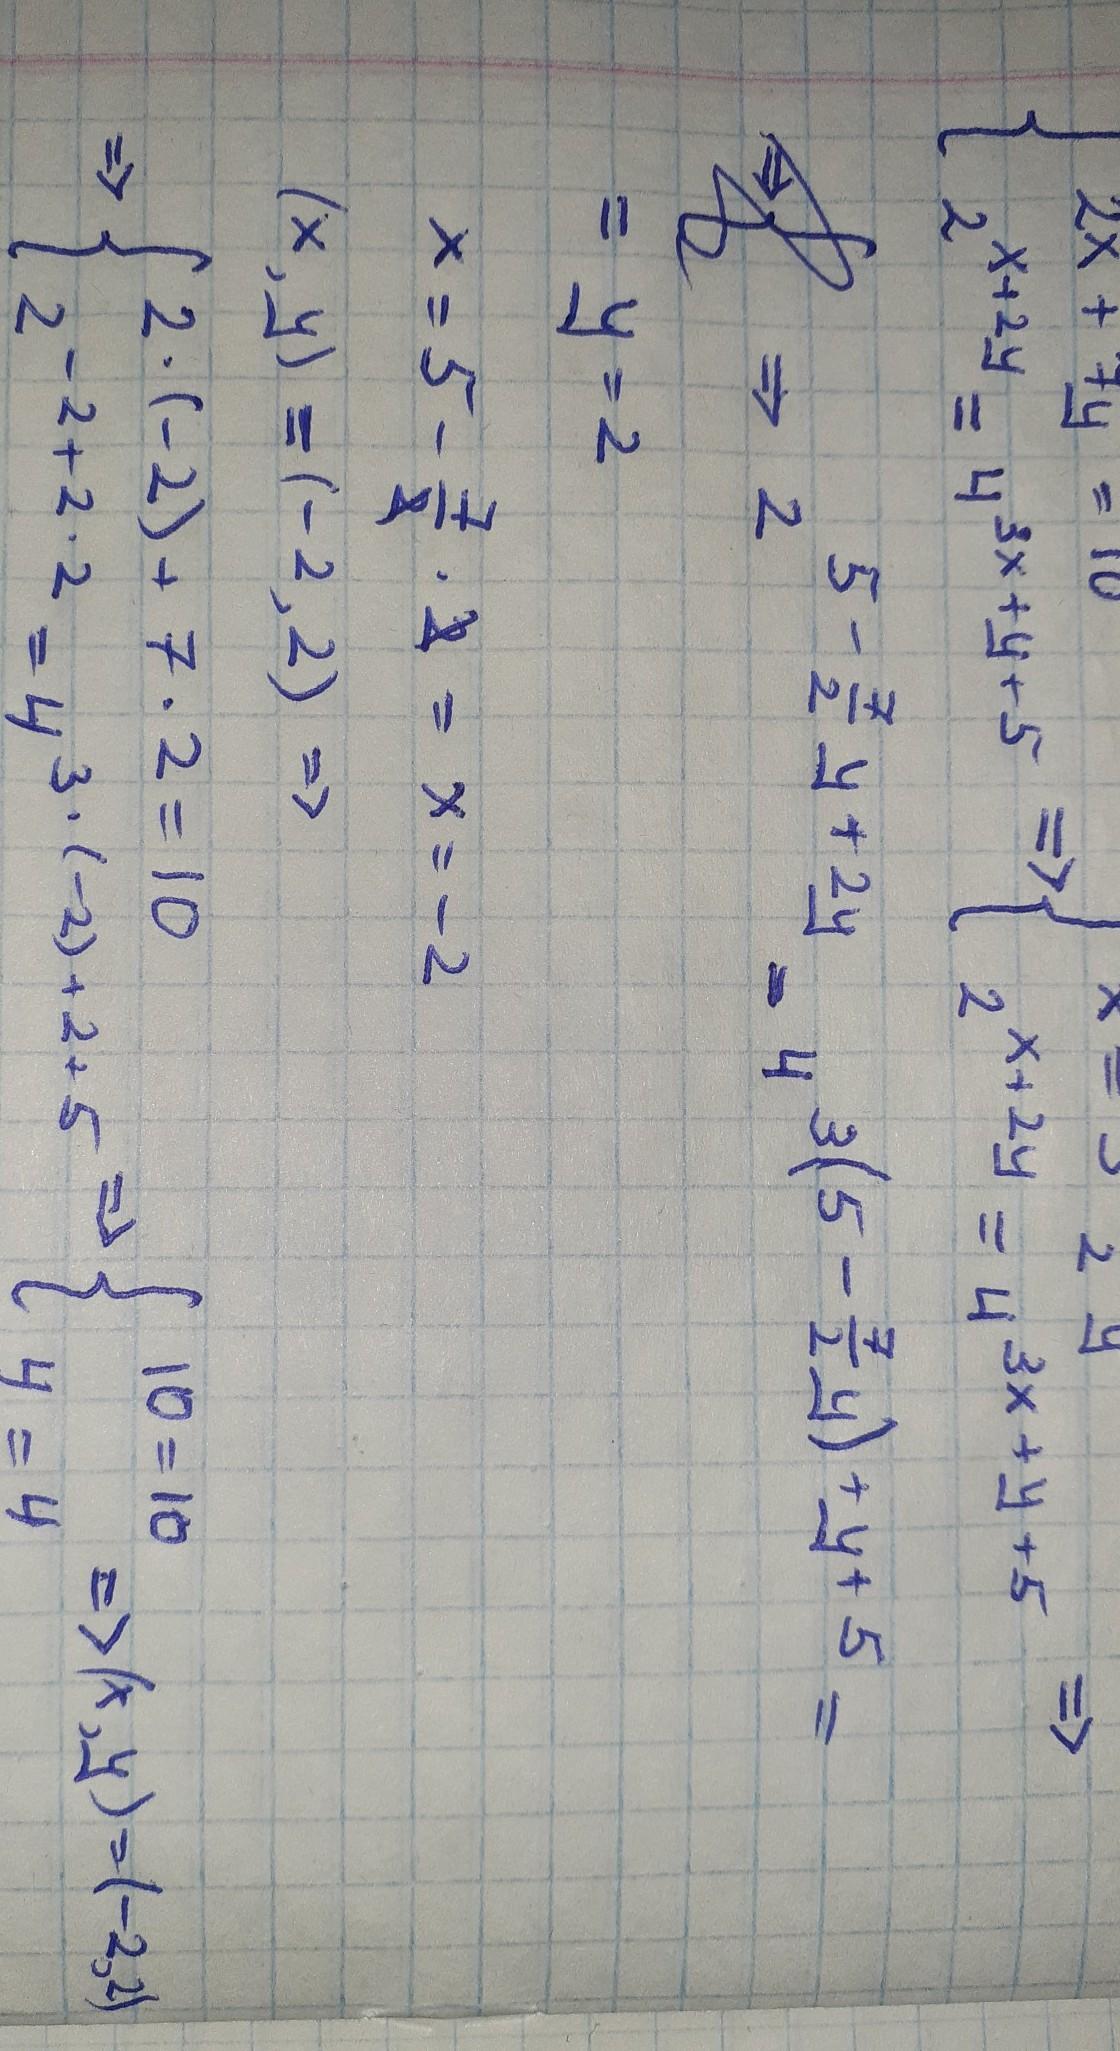 { 2x + 7y = 10
2^{x+2y} = 4^{3x+y+5} => { x = 5 2 y
2^{x+2y} = 4^{3x+y+5} =>
=> 2^{5 - 7/2 y + 2y} = 4^{3(5 - 7/2 y) + y + 5} =
= y = 2
x = 5 - 7/2 · 2 = x = -2
(x, y) = (-2, 2) =>
=> { 2·(-2) + 7·2 = 10
2^{-2+2·2} = 4^{3·(-2)+2+5} => { 10 = 10
4 = 4 => (x, y) = (-2, 2)